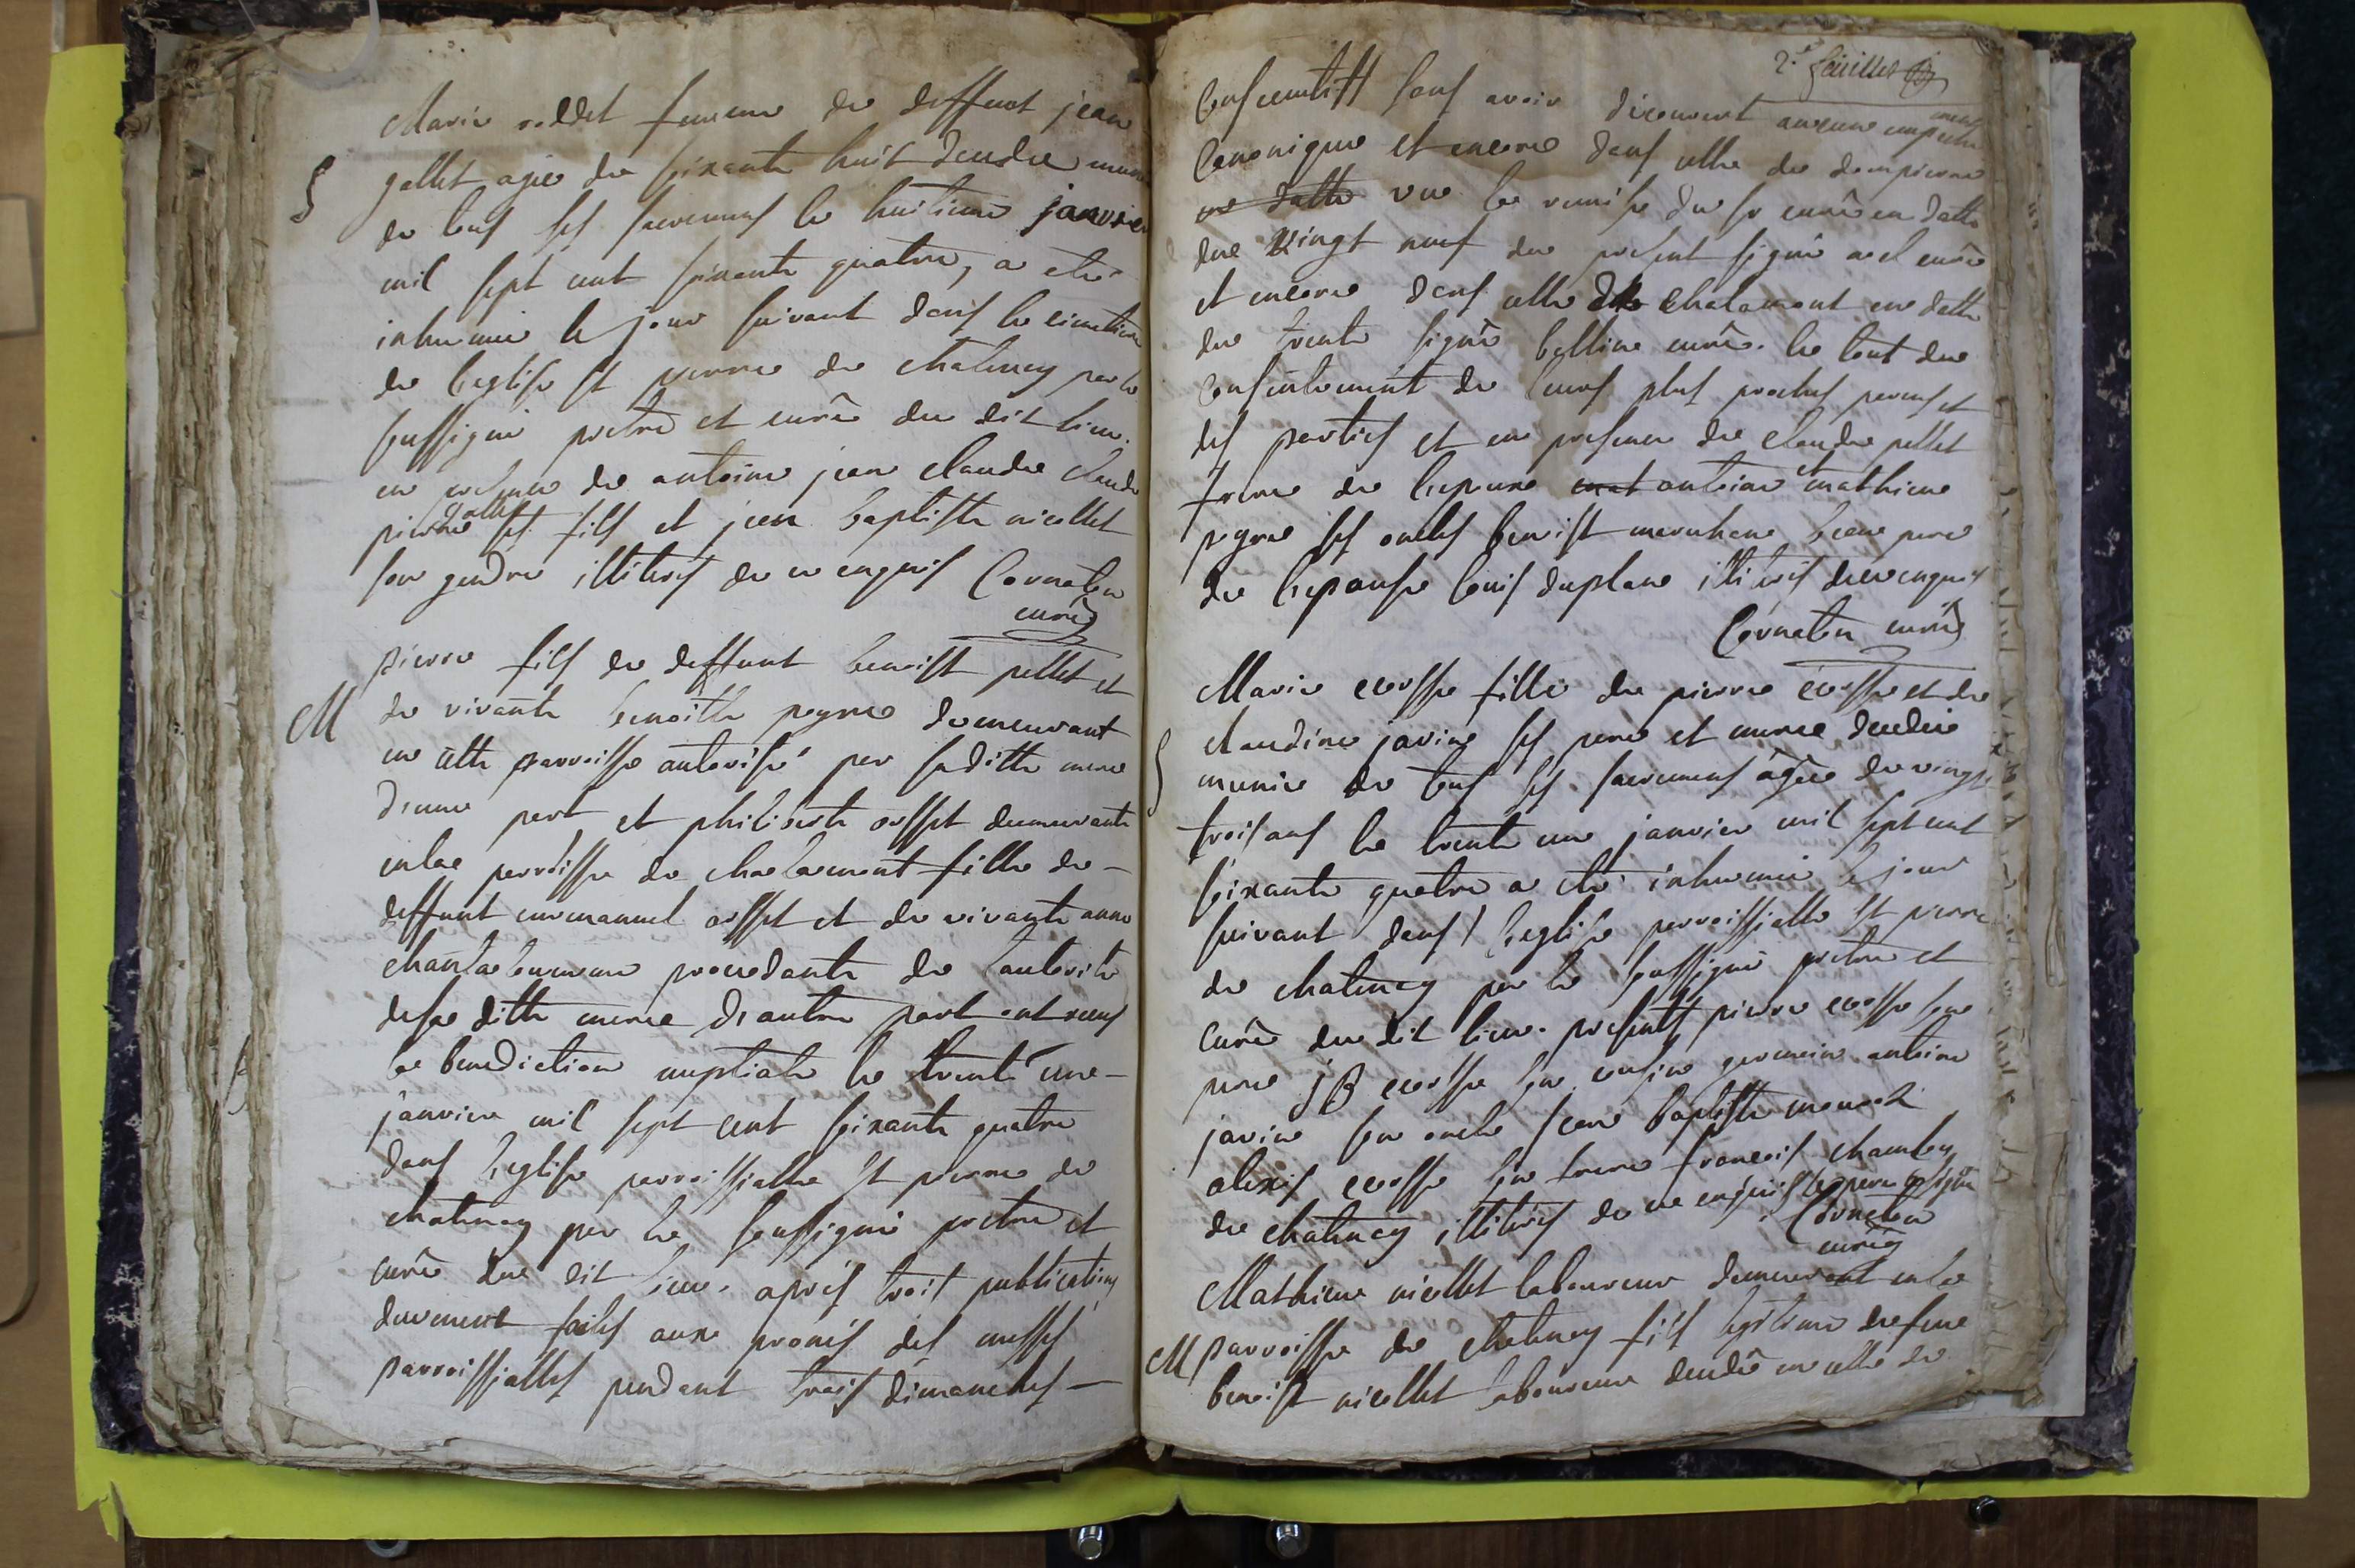 Marie roddet femme de deffunt jean
S
gallet agée de soixante huit decedée munie
de tous ses sacremens le huitieme janvier
mil sept cent soixante quatre, a eté
inhumée le jour suivant dans le cimetiere
de l'eglise st pierre de chatenay par le
soussigné pretre et curé du dit lieu.
en presence de antoine jean claude claude
pierre gallet ses fils et jean baptiste nicollet
son gendre illiterés de ce enquis Cornaton
curé
pierre fils de deffunt benoist pellet et
M
de vivante benoitte peyne demeurant
en cette parroisse autorisé par sa ditte mere
d'une part et philiberte osset demeurante
en la parroisse de chalamont fille de -
deffunt emmanuel osset et de vivante anne
procedante de l'autorité
de sa ditte mere d'autre part ont receu
la benediction nuptiale le trente une -
janvier mil sept cent soixante quatre
dans l'eglise parroissialle st pierre de
chatenay par le soussigné pretre et
curé du dit lieu. apres trois publications
duement faites aux pronés des messes
parroissialles pendant trois dimanches -
2e feuillet
consecutifs sans avoir decouvert aucun empeche
ment
canonique et encore dans celle de dompierre
en datte vue la remise du sr curé en datte
du vingt neuf du present signé curé
et encore dans celle de chalamont en datte
du trente signé belline curé. le tout du
consentement de leurs plus proches parens et
des parties et en presence de claude pellet
frere de l'epoux et antoine et mathieu
peyne ses oncles benoist beau pere
de l'epouse louis duplane illiterés de ce enquis
Cornaton curé
Marie cosse fille de pierre cosse et de
S
claudine javine ses pere et mere decedée
munie de tous ses sacremens âgée de vingt
trois ans le trente une janvier mil sept cent
soixante quatre a eté inhumée le jour
suivant dans l'eglise parroissialle st pierre
de chatenay par le soussigné pretre et
curé du dit lieu. presents pierre cosse son
pere JB cosse son cousin germain antoine
javine son oncle jean baptiste
alexis cosse son frere francois chambon
de chatenay illiterés de ce enquis le pere
Cornaton
curé
Mathieu nicollet laboureur demeurant en la
M
parroisse de chatenay fils legitime de feu
benoist nicollet laboureur decedé en celle de